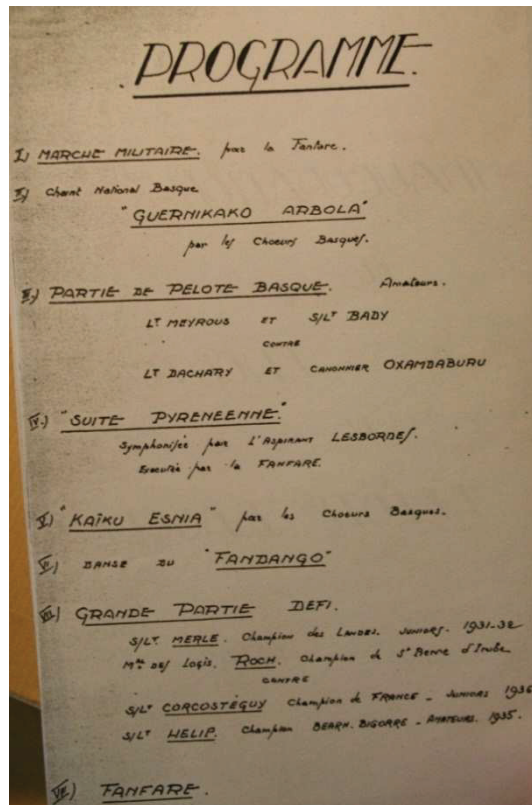 PROGRAMME.
I) MARCHE MILITAIRE. par la Fanfare.
II) Chant National Basque
"GUERNIKAKO ARBOLA"
par les Choeurs Basques.
III) PARTIE DE PELOTE BASQUE. Amateurs.
LT MEYROUS ET S/LT BADY
CONTRE
LT DACHARY ET CANONNIER OXAMBABURU
IV.) "SUITE PYRENEENNE."
Symphonisée par L'ASPIRANT LESBORDES.
Executée par la FANFARE.
V) "KAÏKU ESNIA" par les Choeurs Basques.
VI) DANSE DU "FANDANGO"
VII) GRANDE PARTIE DEFI.
S/LT MERLE. Champion des LANDES. JUNIORS. 1931-32
Mal des Logis. ROCH. Champion de St Pierre d'Irube
CONTRE
S/LT CORCOSTÉGUY Champion de FRANCE - JUNIORS 1936
S/LT WELIP. Champion BEARN. BIGORRE - AMATEURS. 1935.
VIII) FANFARE.